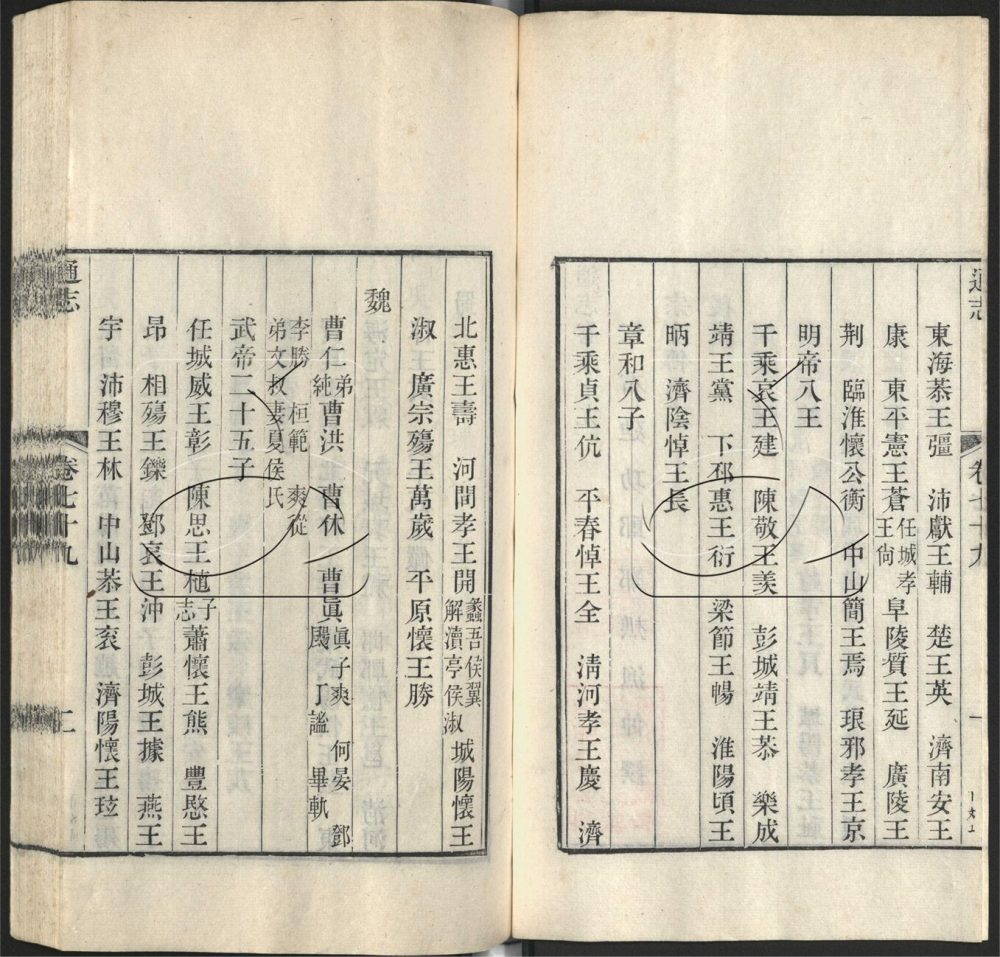 通志
卷七十九
一
東海恭王彊　沛獻王輔　楚王英　濟南安王
康　東平憲王蒼任城孝王尚　阜陵質王延　廣陵王
荆　臨淮懷公衡　中山簡王焉　琅邪孝王京
明帝八王
千乘哀王建　陳敬王羨　彭城靖王恭　樂成
靖王黨　下邳惠王衍　梁節王暢　淮陽頃王
昞　濟陰悼王長
章和八子
千乘貞王伉　平春悼王全　清河孝王慶　濟
北惠王壽　河間孝王開蠡吾侯翼解瀆亭侯淑　城陽懷王
淑　廣宗殤王萬歲　平原懷王勝
魏
曹仁弟純　曹洪　曹休　曹眞眞子爽　何晏　鄧颺　丁謐　畢軌
李勝　桓範　爽從弟文叔妻夏侯氏
武帝二十五子
任城威王彰　陳思王植子志　蕭懷王熊　豐愍王
昂　相殤王鑠　鄧哀王沖　彭城王據　燕王
宇　沛穆王林　中山恭王袞　濟陽懷王玹
通志
卷七十九
二